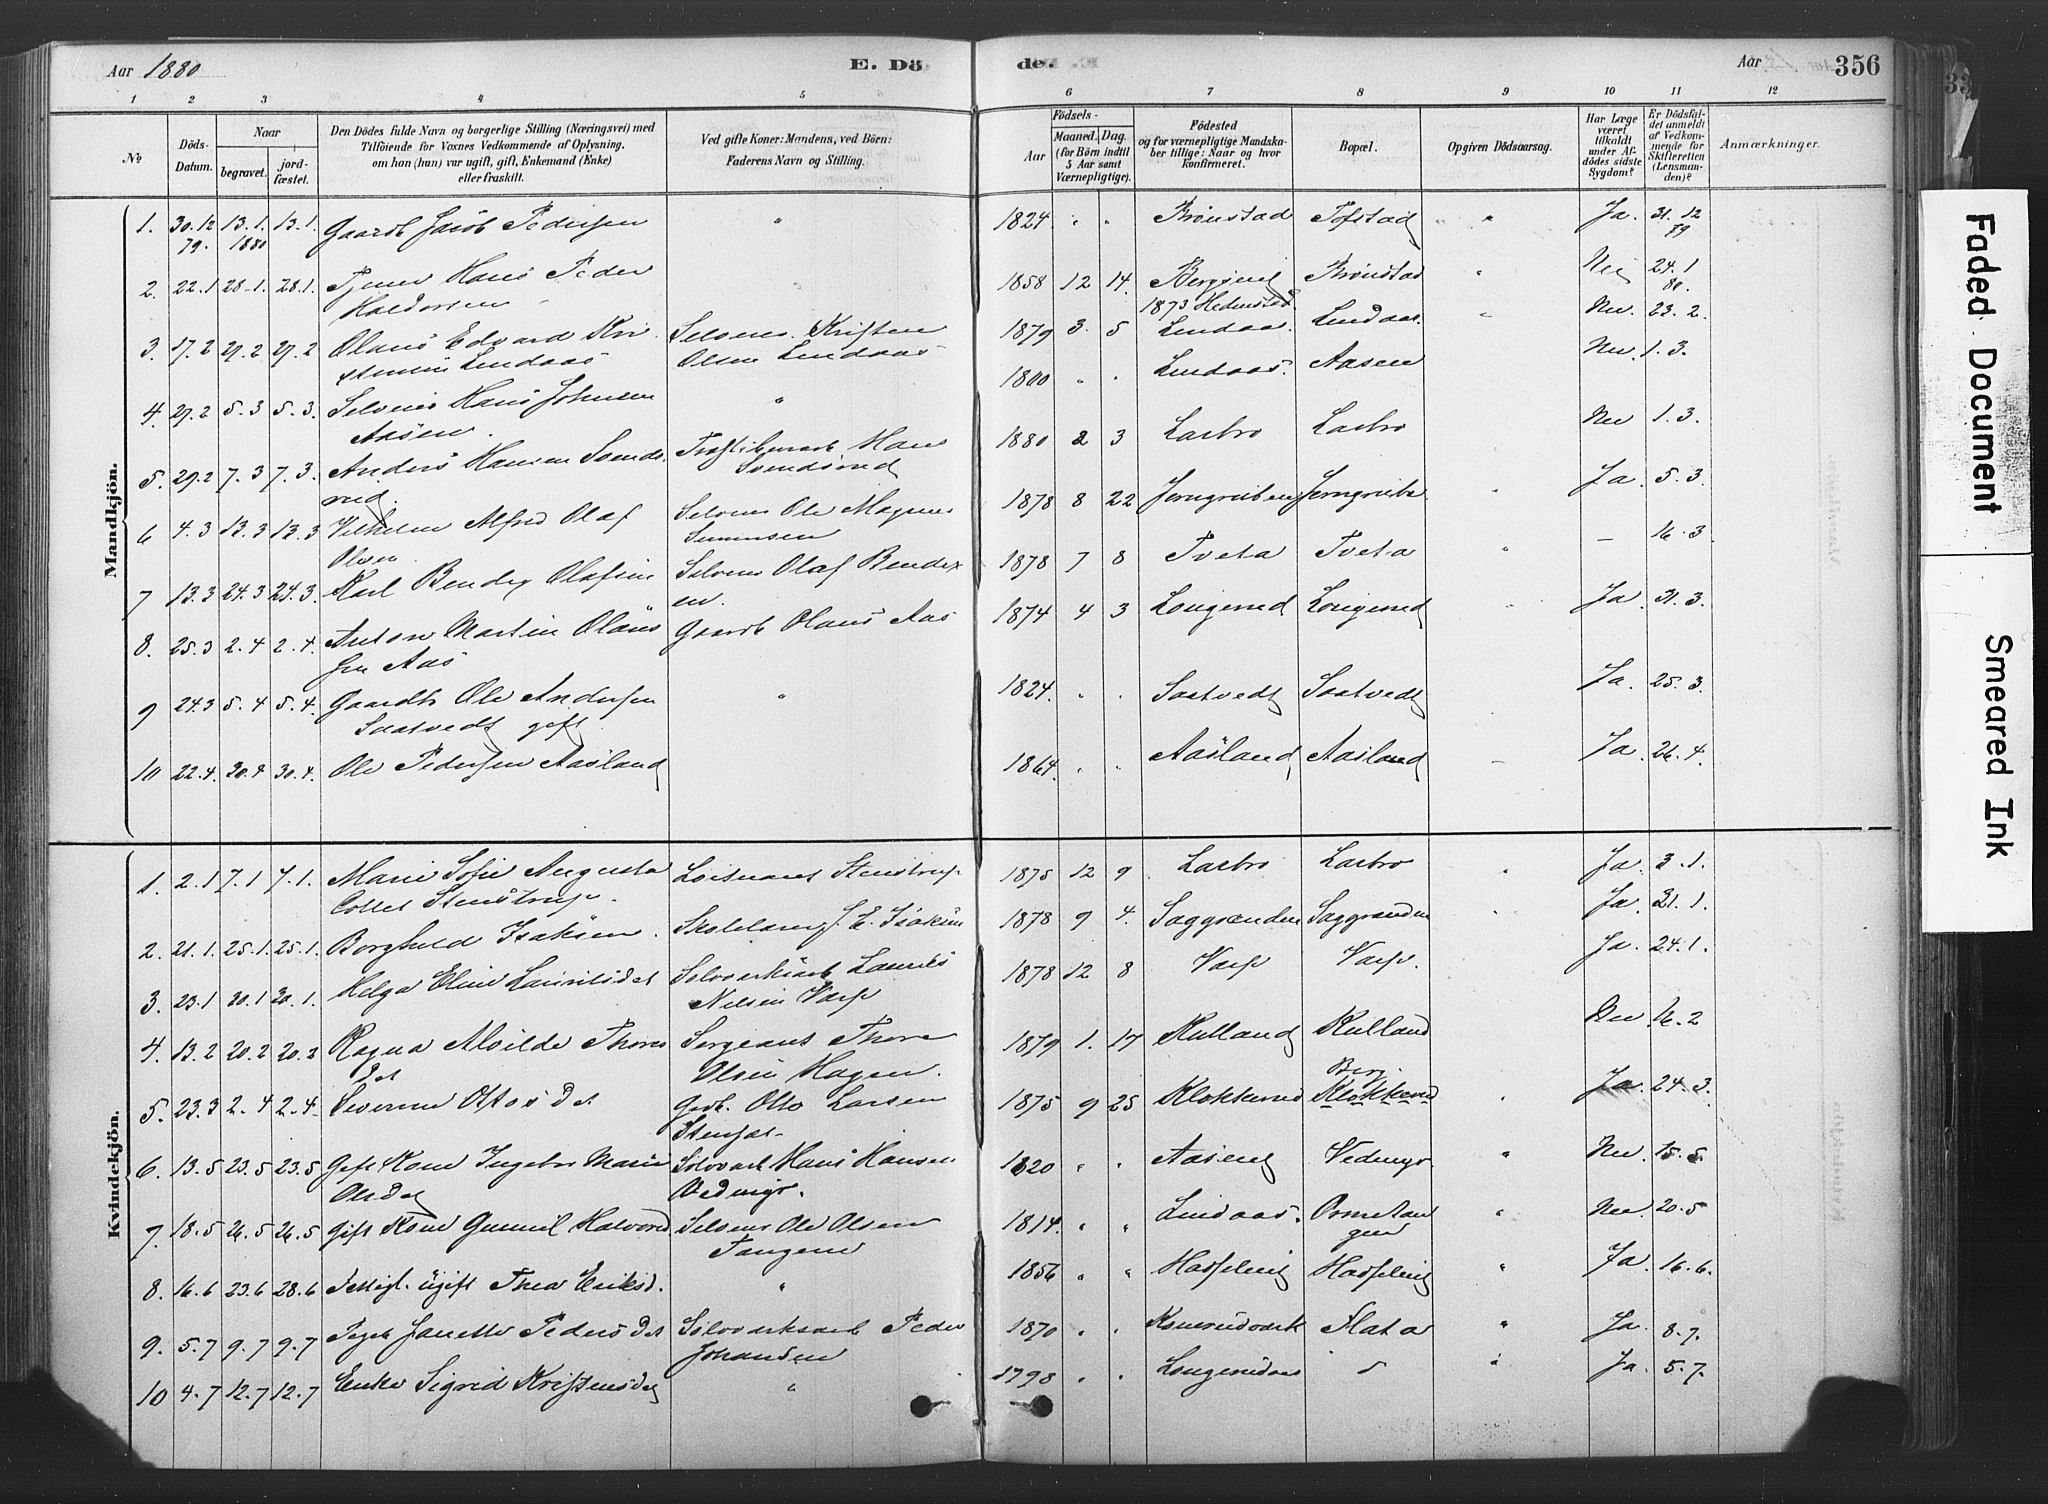 Aar 1880 E. Dö de. Aar 356
1 2 3 4 5 6 7 8 9 10 11 12
No
Döds-Datum.
Naar
begravet.
jordfæstet.
Den Dödes fulde Navn og borgerlige Stilling (Næringsvei) med
Tilföiende for Voxnes Vedkommende af Oplysning,
om han (hun) var ugift, gift, Enkemand (Enke)
eller fraskilt.
Ved gifte Koner: Mandens, ved Börn:
Faderens Navn og Stilling.
Födsels-
Aar
Maaned. Dag.
(for Börn indtil
5 Aar samt
Værnepligtige).
Födested
og for værnepligtige Mandskaber tillige: Naar og hvor
konfirmeret.
Bopæl.
Opgiven Dödsaarsag.
Har Læge
været
tilkaldt
under Afdödes sidste
Sygdom?
Er Dödsfaldet anmeldt
af Vedkommende for
Skifteretten
(Lensmanden)?
Anmærkninger.
Mandkjön.
1. 30.12 79. 13.1. 1880 13.1. Gaardb. Jacob Pedersen " 1824 " " Brönstad Tofstad " Ja. 31.12 79
2. 22.1 28.1. 28.1. Tjener Hans Peder " 1858 12 14. Brönstad " Nei 24.1 80.
Haldorsen 1873
3. 17.2 29.2 29.2 Olaus Edvard Kri Selveier Kristen 1879 3. 5 Lindaas. Lindaas. Nei. 23.2.
stensen Lindaas Olsen Lindaas
4. 29.2 5.3 5.3. Selveier Hans Johnsen " 1800 " " Lindaas. Aasen Nei. 1.3.
Aasen.
5. 29.2 7.3 7.3. Anders Hansen Svends Hans 1880 2 3 Labro Labro Nei 1.3.
rud. Svendsrud
6 4.3 13.3 13.3 Vilhelm Alfred Olaf Selveier Ole Magnus 1878 8 22 Jerngruben Jerngrube " Ja. 5.3.
Olsen Simensen
7 13.3 24.3 24.3. Karl Bendix Olafsen Selveier Olaf Bendix 1878 7 8 Tveta Tveta " – 16.3
en.
8. 25.3 2.4 2.4. Anton Martin Olaus Gaardb. Olaus Aas 1874 4 3 Longerud Longerud " Ja. 31.3.
sen Aas
9 24.3 5.4 5.4. Gaardb. Ole Andersen " 1824. " " Saatvedt Saatvedt Ja. 25.3.
Saatvedt gift
10 22.4. 30.4 30.4. Ole Pedersen Aasland 1864. " " Aasland Aasland Ja. 26.4.
Kvindekjön.
1. 2.1 7.1 7.1. Marie Sofie Augusta Stenstrup 1875 12 9 Labro Labro " Ja. 3.1.
Collet Stenstrup.
2. 21.1. 25.1. 25.1. Borghild Isaksen. Skolelærer J. E. Isaksen 1878 9 4. Saggrenden Saggrenden " Ja. 21.1.
3. 23.1 30.1 30.1. Helga Eline Lauritsdet Sölvverksarb. Laurits 1878 12 8 Varp Varp. Ja. 24.1.
Nilsen Varp
4. 13.2 20.2 20.2 Ragna Alvilde Thores Sergeant Thore 1879 1. 17 Rulland Rulland Nei 16.2
det Olsen Hagen.
5. 23.3 2.4 2.4. Severine Ottosdet Otto Larsen 1875 9 25 Klokkerud Berg. Klokkerud " Ja. 24.3.
6. 13.5 23.5 23.5 Gift Kone Ingebor Marie Sölvverk Hans Hansen 1820 " " Aaseng " Nei. 15.5.
Olsdet
7. 18.5 26.5 26.5 Gift Kone Gunnil Halvorsd Selveier Ole Olsen 1814. " " Lindaas. Ormetan " Nei. 20.5
Tangene gen
8. 16.6 23.6 28.6 ugift Thea Eriksd. " 1856 " " " Ja. 16.6.
9. 5.7 9.7 9.7 Pige Janette Pedersdet Sölvverksarb Peder 1870 " " Flata " Ja. 8.7.
Johansen
10 4.7 12.7 12.7 Enke Sigrid Kristensdet " 1798 " " " Ja. 5.7.
Faded Document
Smeared Ink